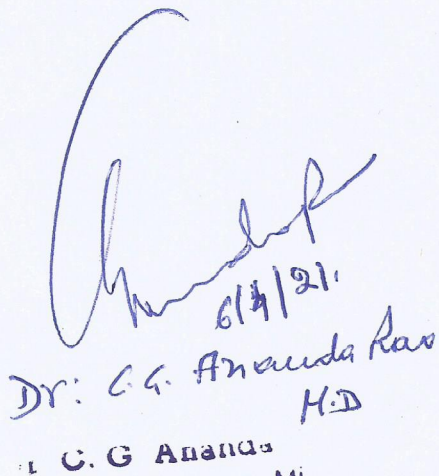 6/4/21.
Dr: C.G. Ananda Rao
M.D
C. G Ananda